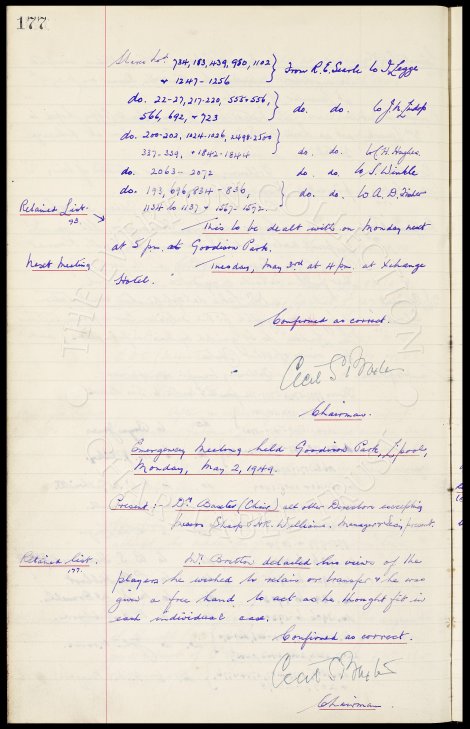 177
Share Nos. 734, 183, 439, 980, 1102 } From R. E. Searle to J. Legge
+ 1247 - 1256
do. 22-27, 217-220, 555+556, } do. do. to J. H.
566, 692, + 723
do. 200-202, 1024-1026, 2498-2500 }
337-339, + 1842-1844 do. do. to C. H. Hughes
do. 2063 - 2072 do. do. to S. Winkle
do. 193, 696, 834 - 836, } do. do. to A. D. Fisher
1134 to 1137 + 1567-1572.
Retained List.
93.
This to be dealt with on Monday next
at 5 pm. at Goodison Park.
Next Meeting
Tuesday, May 3rd at 4 pm. at Xchange
Hotel.
Confirmed as correct.
Cecil S. Baxter
Chairman.
Emergency Meeting held Goodison Park, L'pool,
Monday, May 2, 1949.
Present :- Dr. Baxter (Chair) all other Directors excepting
Messrs Sharp & W.R. Williams. Manager & Secy present.
Retained list.
177.
Mr. Britton detailed his views of the
players he wished to retain or transfer & he was
given a free hand to act as he thought fit in
each individual case.
Confirmed as correct.
Cecil S. Baxter
Chairman.